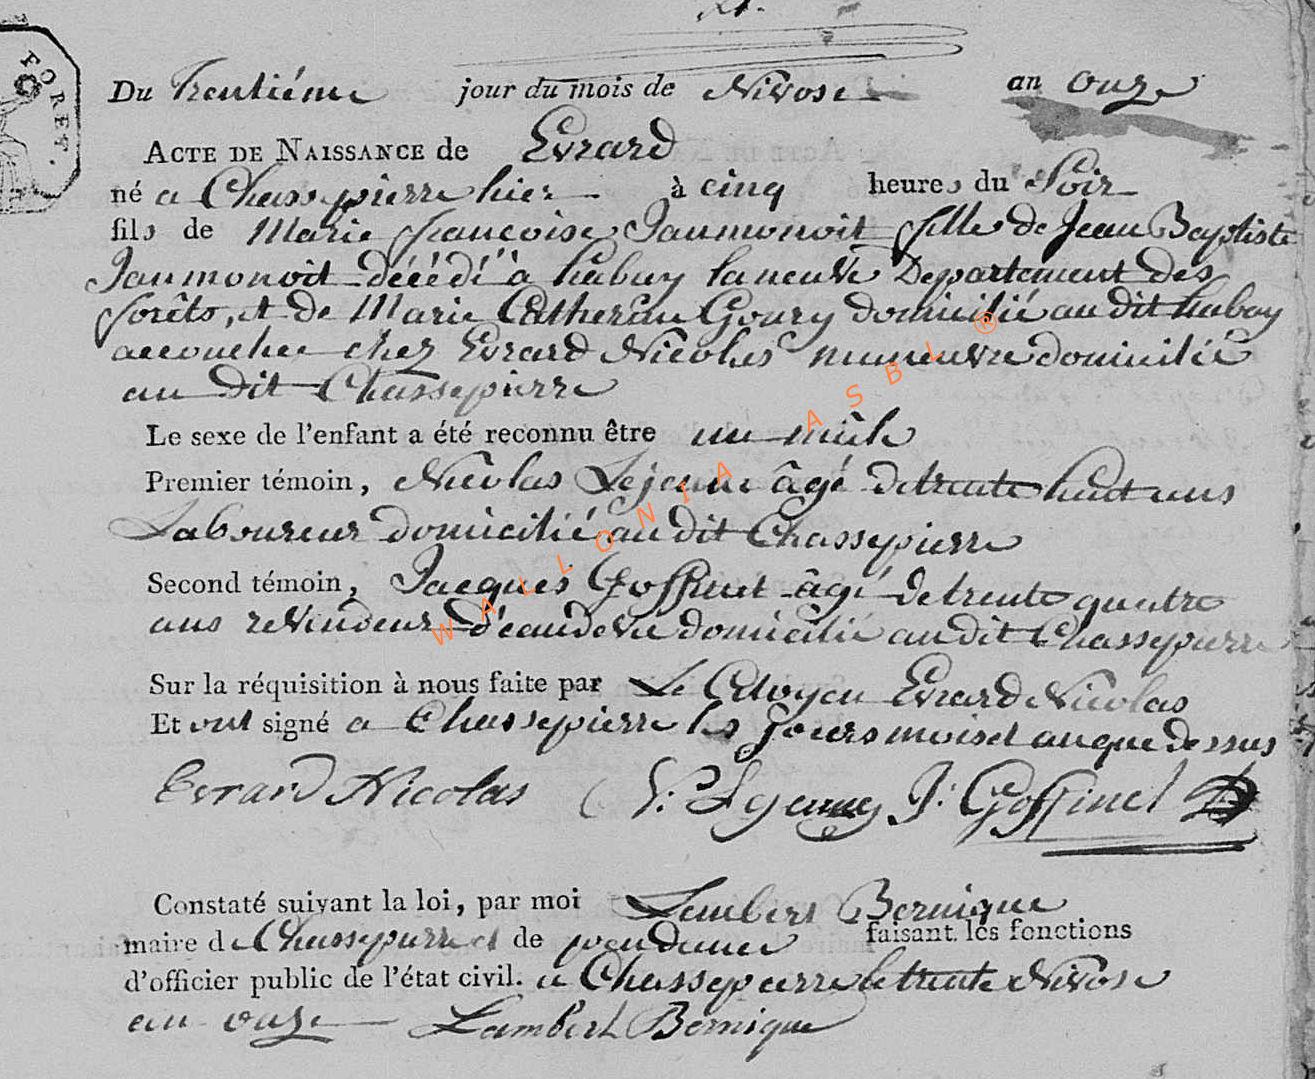 FORET.
Du Trentiéme jour du mois de Nivose an onze
ACTE DE NAISSANCE de Evrard
né a Chassepierre hier à cinq heures du Soir
fils de Marie françoise Jaumonoit fille de Jean Baptiste
Jaumonoit décédé à habay laneuve Departement des
forêts, et de Marie Catherine Goury domicilié au dit habay
accouchee chez Evrard Nicolas maneuvre domicilié
au dit Chassepierre
Le sexe de l'enfant a été reconnu être un mâle
Premier témoin, Nicolas Lejeune âgé de trente huit ans
Laboureur domicilié au dit Chassepierre
Second témoin, Jacques Goffinet âgé de trente quatre
ans revendeur d'eaudevie domicilié au dit Chassepierre
Sur la réquisition à nous faite par Le Citoyen Evrard Nicolas
Et ont signé a Chassepierre les jours mois et an que dessus
Evrard Nicolas N. Lejeune J: Goffinet
Constaté suivant la loi, par moi Lambert Bernique
maire de Chassepierre et de faisant les fonctions
d'officier public de l'état civil. a Chassepierre le trente Nivose
an onze Lambert Bernique
WALLONIA ASBL ®